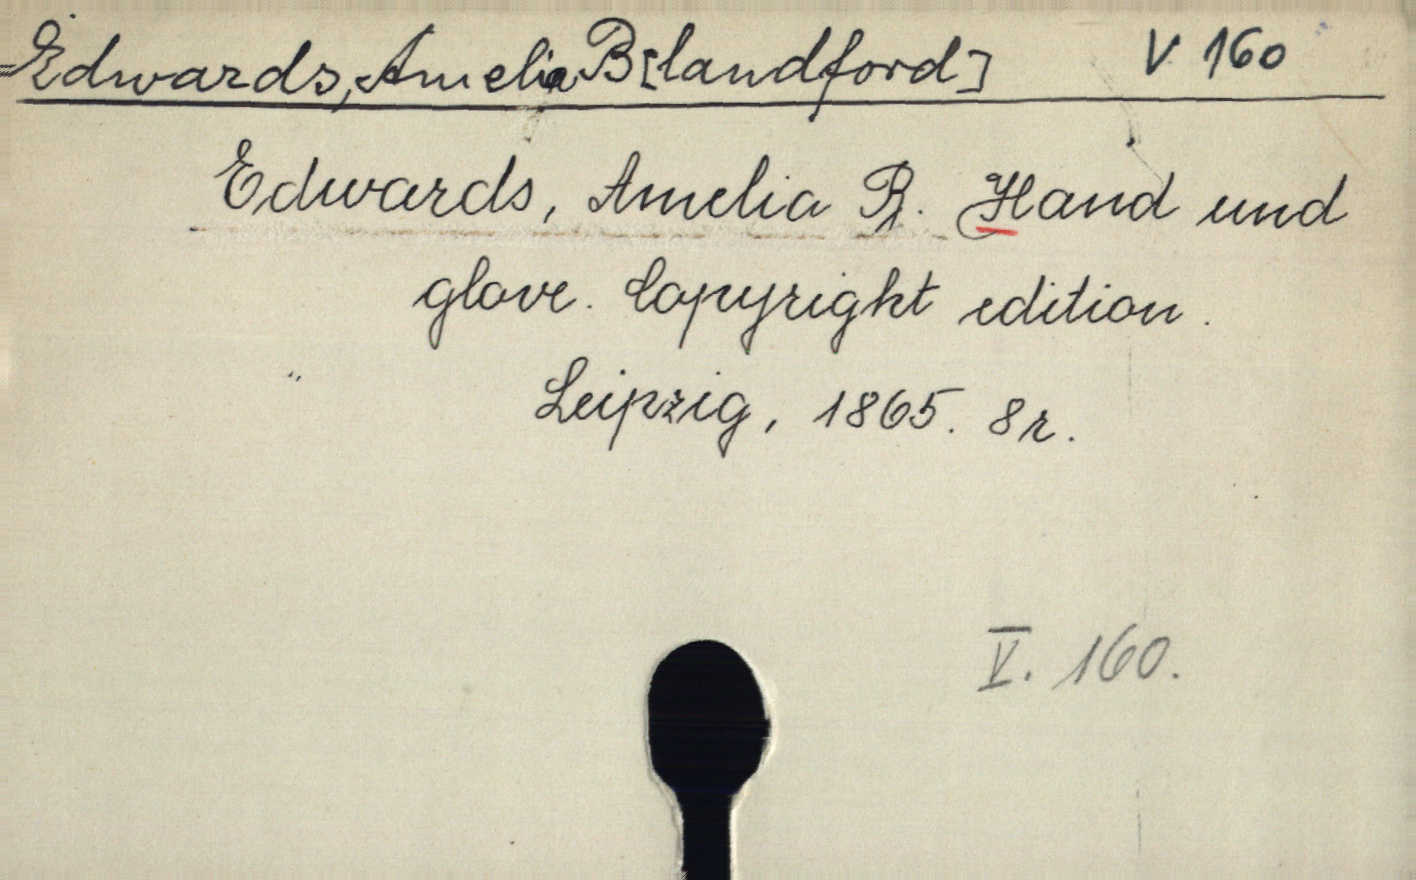 Edwards, Amelia B[landford] V 160
Edwards, Amelia B. Hand und
glove. Copyright edition.
Leipzig, 1865. 8r.
V. 160.